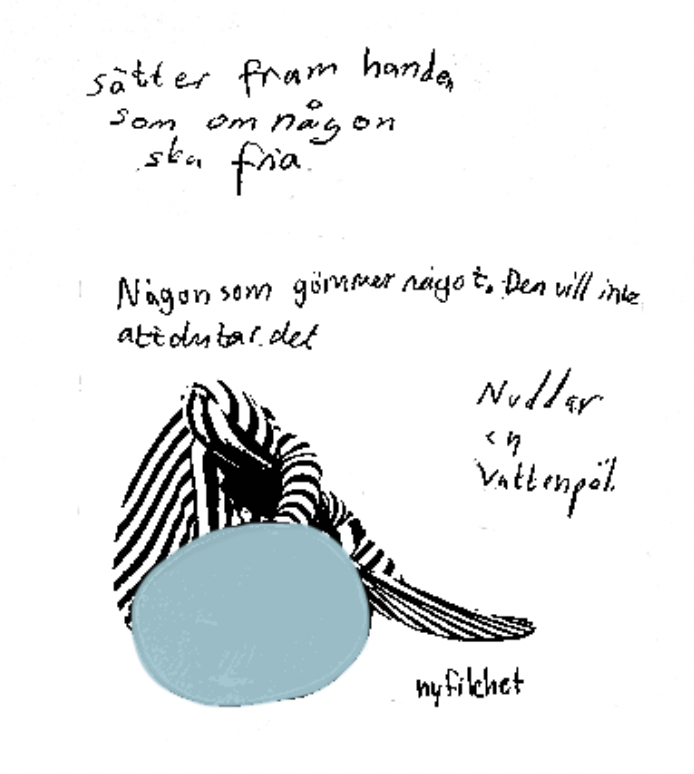 sätter fram handen
som om någon
ska fria.
Någon som gömmer något. Den vill inte
att du tar det
Nuddar
en
Vattenpöl.
nyfikhet